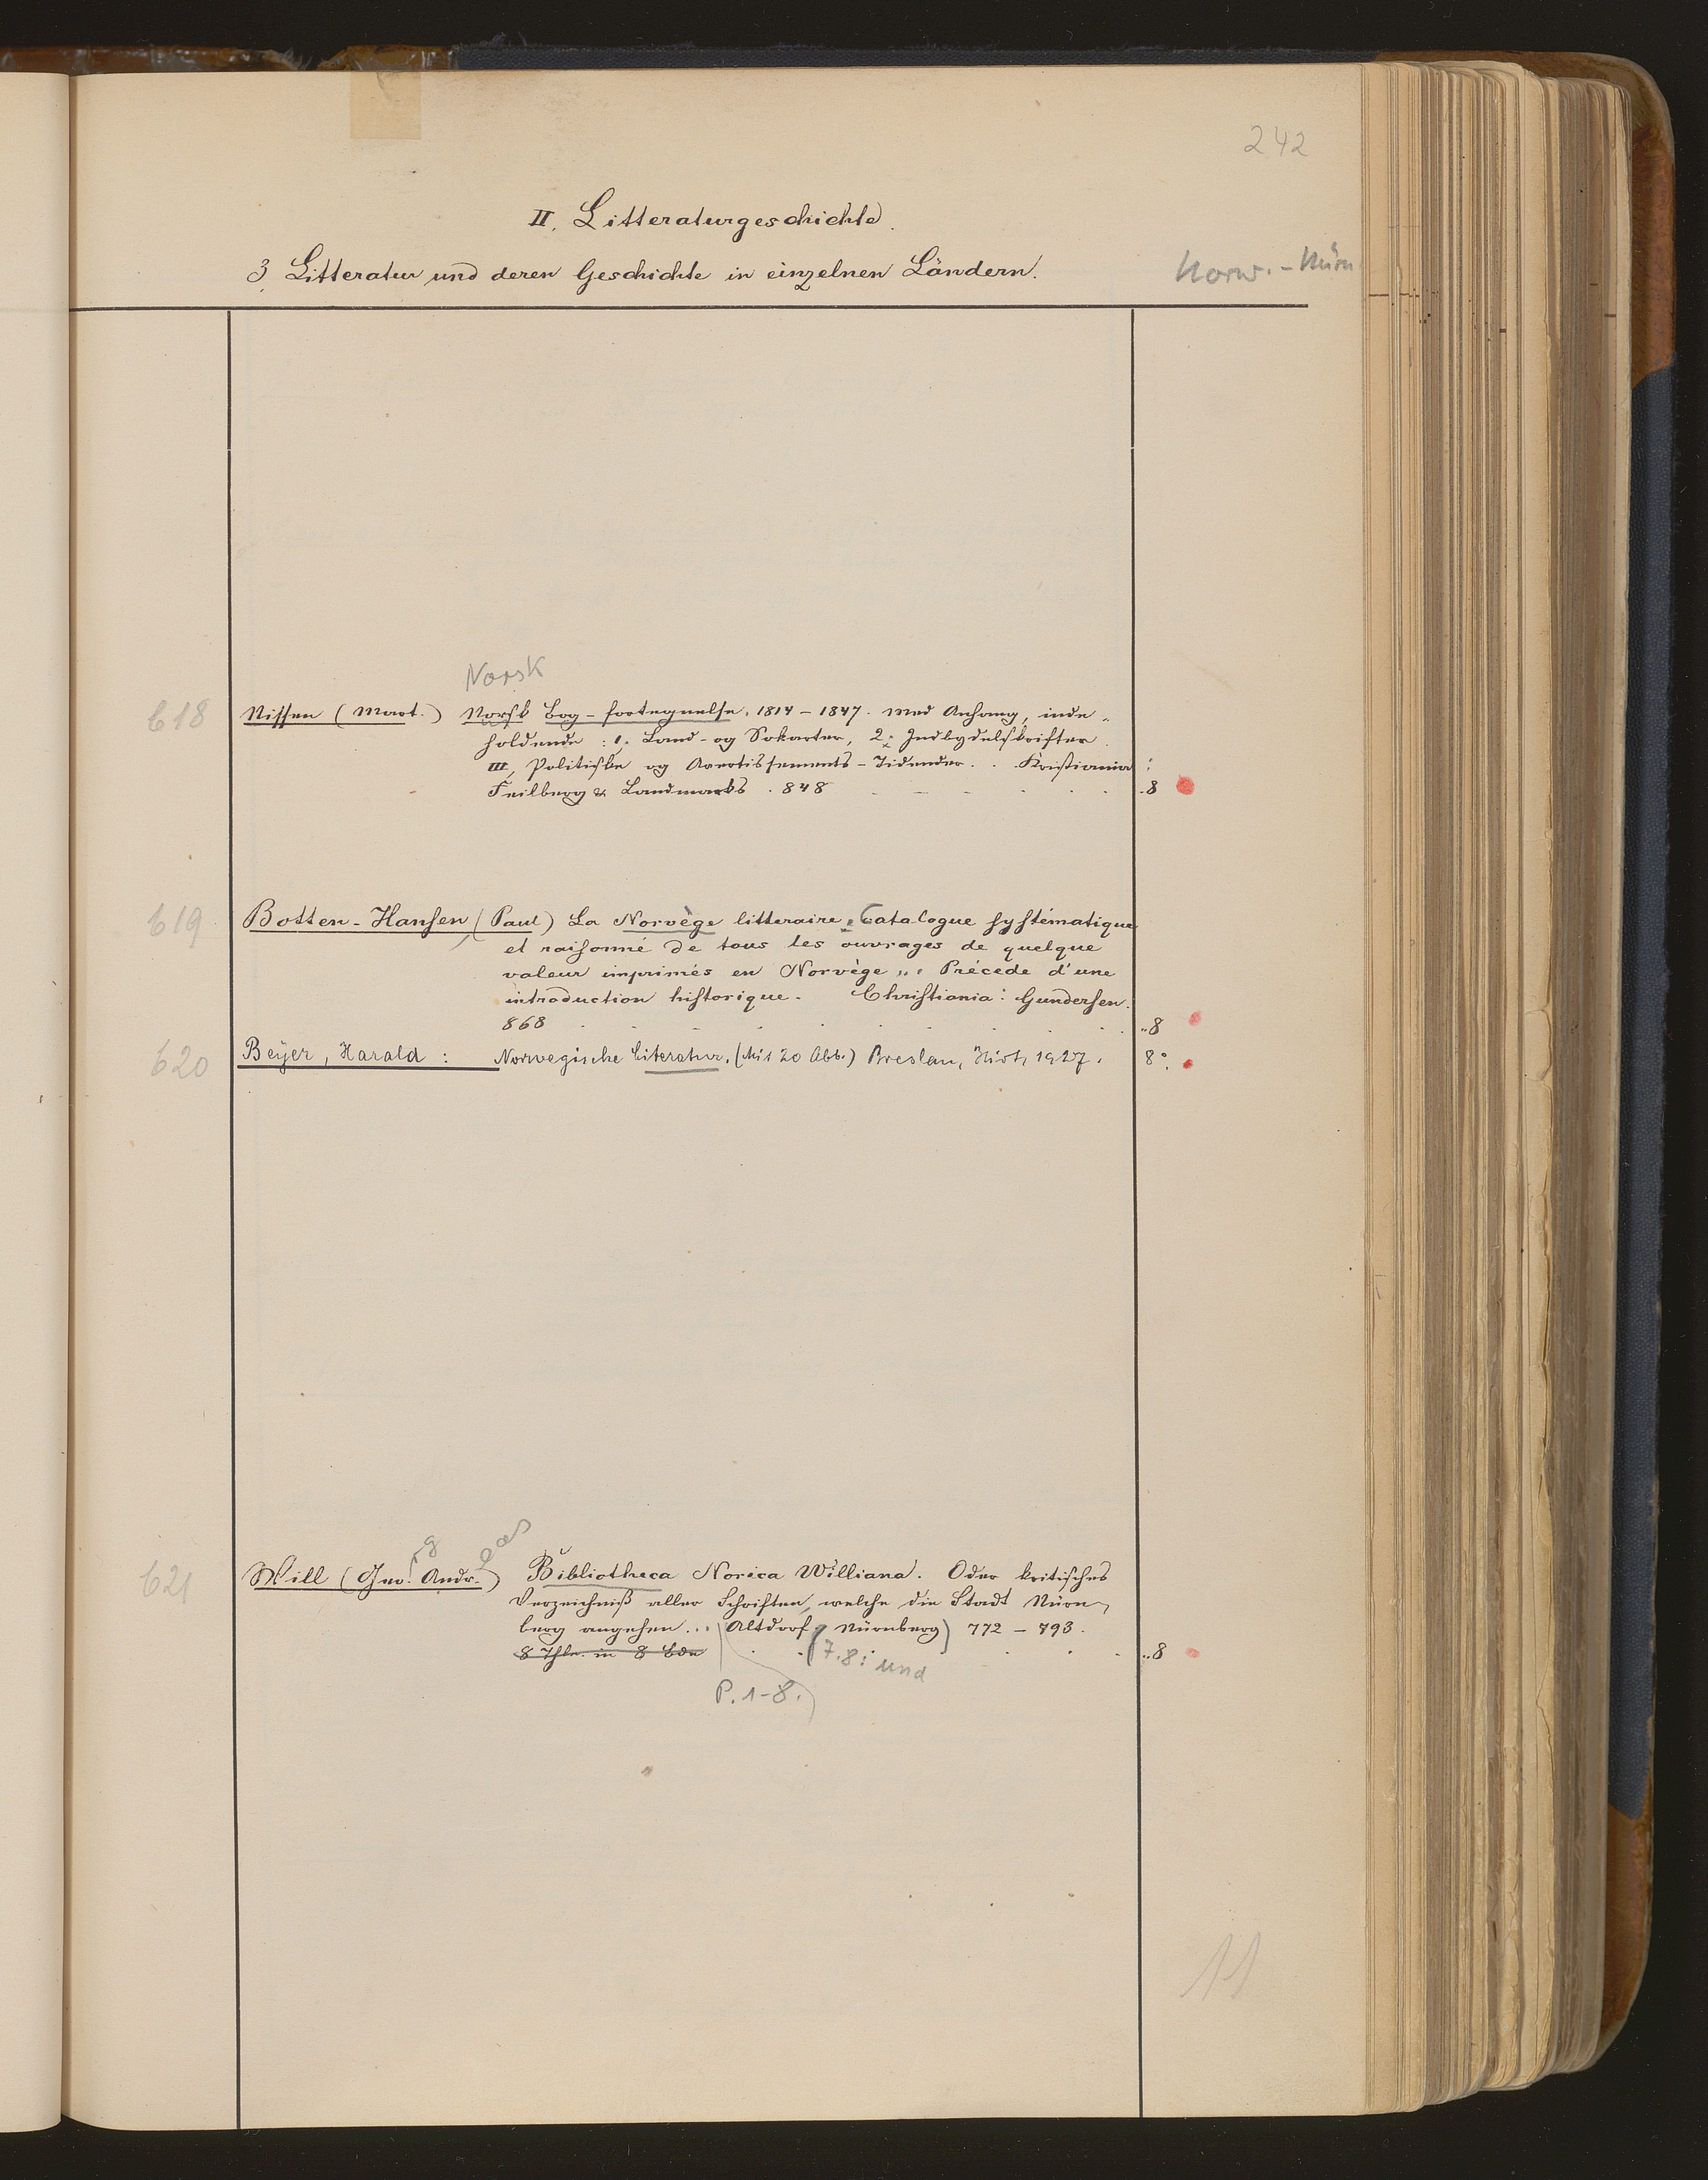 242
II. Litteraturgeschichte.
3. Litteratur und deren Geschichte in einzelnen Ländern.
Norw. - Nürn
Norsk
618 Nissen (Mart.) Norsk Bog-fortegnelse. 1814-1847. Med Anhang, inde-
holdende: 1. Land- og Sokarter, 2. Indbydelsskrifter
III, Politiske og Avertissements-Tidender. . . Kristiania:
Feilberg & Landmarks. 848 . . 8
619 Botten-Hansen (Paul) La Norvège litteraire. Catalogue systématique
et raisonné de tous les ouvrages de quelque
valeur imprimés en Norvège ... Précede d'une
introduction historique. Christiania: Gundersen.
868 . . 8
620 Beyer, Harald: Norwegische Literatur. (Mit 20 Abb.) Breslau, Hirt, 1927. 8°.
g eas
621 Will (Geo. Andr.) Bibliotheca Norica Williana. Oder kritisches
Verzeichniß aller Schriften, welche die Stadt Nürn-
berg angehen... (Altdorf, Nürnberg) 772-793.
8 Thle. in 8 Bde . . 8
(7.8: und
P. 1-8.
11